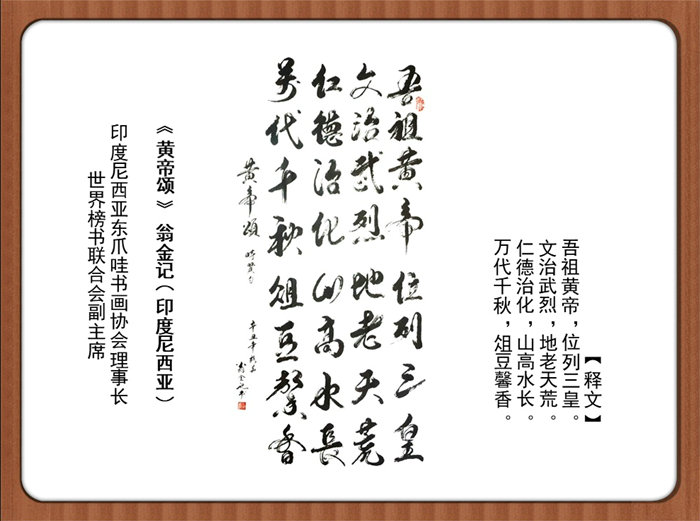 【释文】
吾祖黄帝，位列三皇。
文治武烈，地老天荒。
仁德治化，山高水长。
万代千秋，俎豆馨香。
吾祖黄帝位列三皇
文治武烈地老天荒
仁德治化山高水長
萬代千秋俎豆馨香
黄帝頌
《黄帝颂》翁金记（印度尼西亚）
印度尼西亚东爪哇书画协会理事长
世界榜书联合会副主席